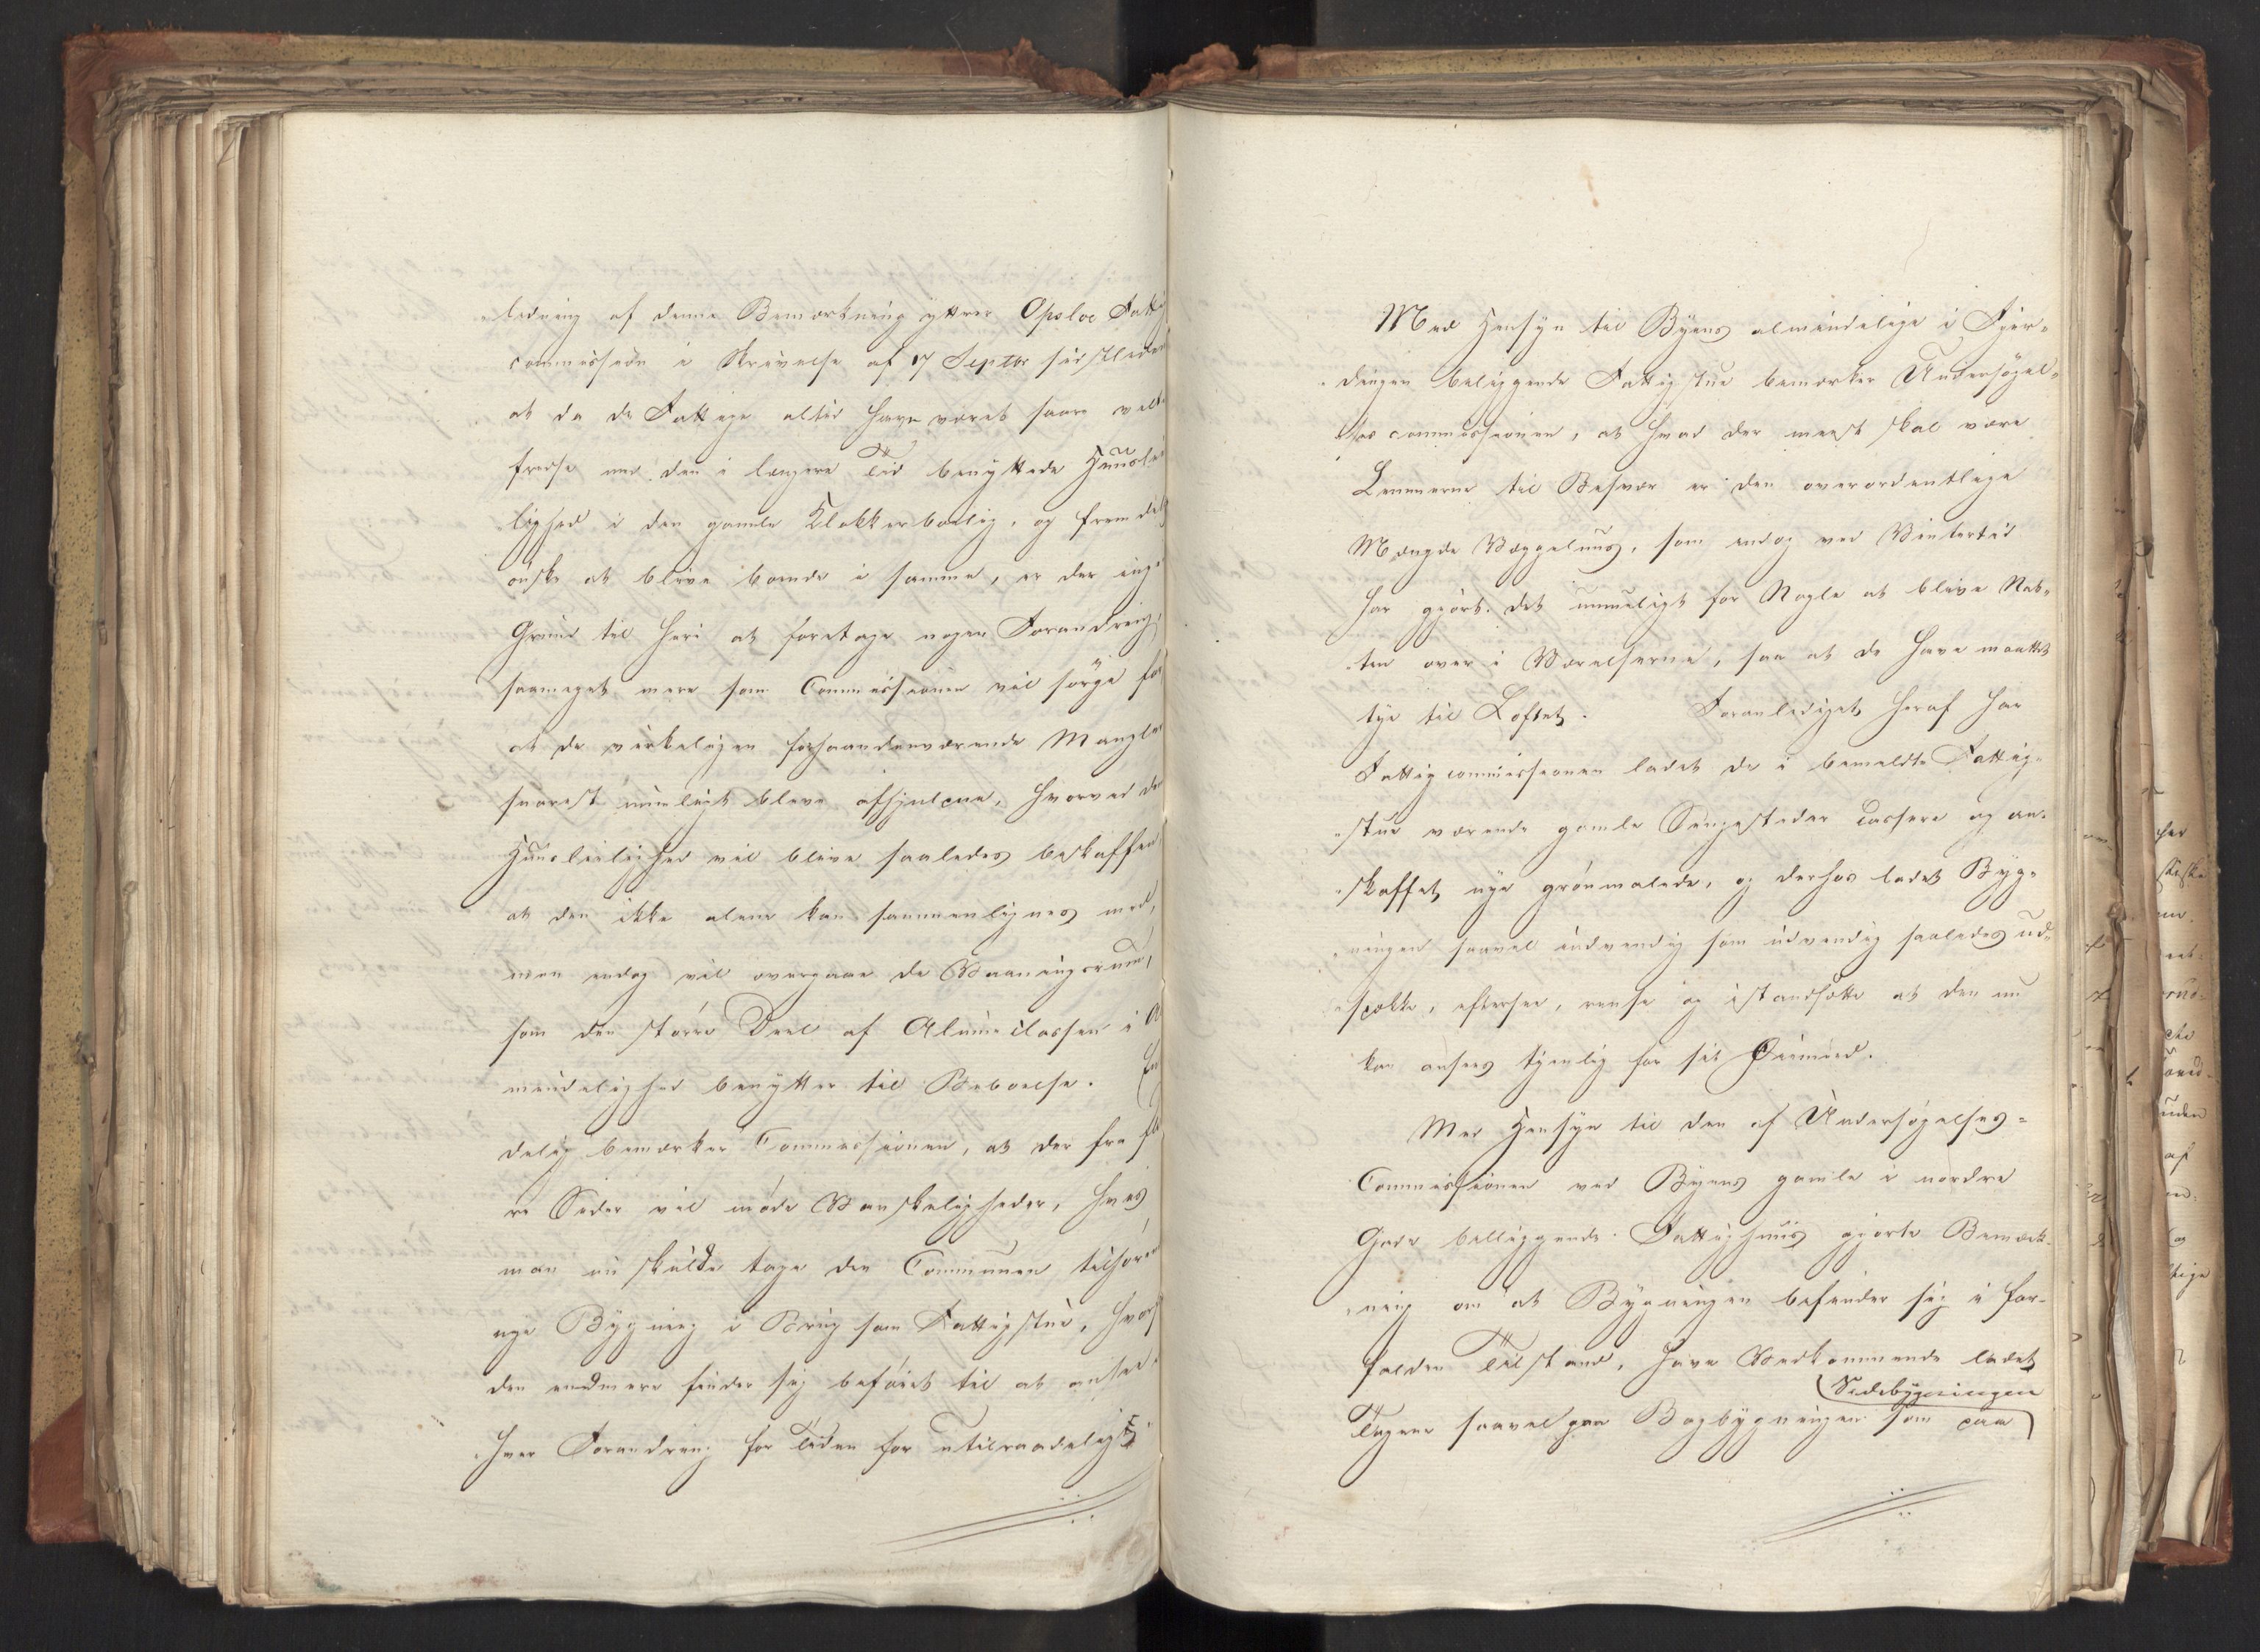 ledning af denne Bemærkning yttrer Opsloe Fattig
commission i Skrivelse af 17 Septbr sidstleden
at da de Fattige altid have været saare vel til
fredse med den i længere Tid benyttede Huuslei
lighed i den gamle Klokkerbolig, og fremdeles
ønske at blive boende i samme, er der ingen
Grund til heri at foretage nogen Forandring,
saameget mere som Commissionen vil sørge for
at de virkeligen forhaandenværende Mangler
snarest mueligt bleve afhjulpne, hvorved den
Huusleilighed vil blive saaledes beskaffen
at den ikke alene kan sammenlignes med,
men endog vil overgaae de Vaaningsrum,
som den større Deel af Almueclassen i Al
mindelighed benytter til Beboelse. En
delig bemærker Commissionen, at der fra fle
re Sider vil møde Vanskeligheder, hvis
man nu skulde tage den Communen tilhøren
nye Bygning i Brug som Fattigstue, hvorf
den endmere finder sig beføiet til at ansee
hver Forandring for Tiden for utilraadeligt.
Med Hensyn til Byens almindelige i Fjer-
dingen beliggende Fattigstue bemærker Undersøgel-
ses commissionen, at hvad der meest skal være
Lemmerne til Besvær er den overordentlige
Mængde Væggeluus, som endog ved Vintertid
har gjort det umueligt for Nogle at blive Nat-
ten over i Værelserne, saa at de have maattet
tye til Loftet. Foranlediget heraf har
Fattigcommissionen ladet de i bemeldte Fattig-
stue værende gamle Sengesteder cassere og an-
skaffet nye grønmalede, og derhos ladet Byg-
ningen saavel indvendig som udvendig saaledes ud-
spække, eftersee, rense og istandsætte at den nu
kan ansees tjenlig for sit Øiemeed.
Med Hensyn til den af Undersøgelses-
Commissionen ved Byens gamle i nordre
Gade belliggende Fattighuus gjorte Bemærk-
ning om at Bygningen befinder sig i for-
falden Tilstand, have Vedkommende ladet
Sidebygningen
Tagene saavel paa Bagbygningen som paa